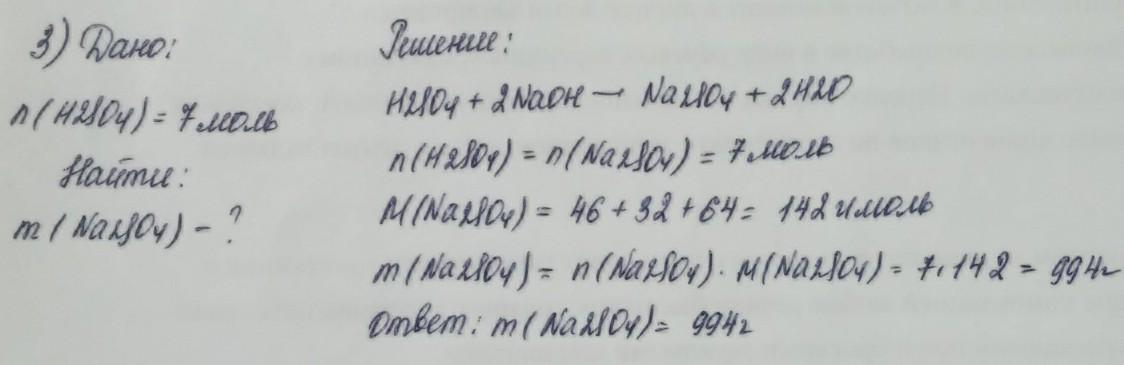 3) Дано:
n(H2SO4) = 7 моль
Найти:
m(Na2SO4) - ?
Решение:
H2SO4 + 2NaOH → Na2SO4 + 2H2O
n(H2SO4) = n(Na2SO4) = 7 моль
M(Na2SO4) = 46 + 32 + 64 = 142 г/моль
m(Na2SO4) = n(Na2SO4) · M(Na2SO4) = 7 · 142 = 994г
Ответ: m(Na2SO4) = 994г